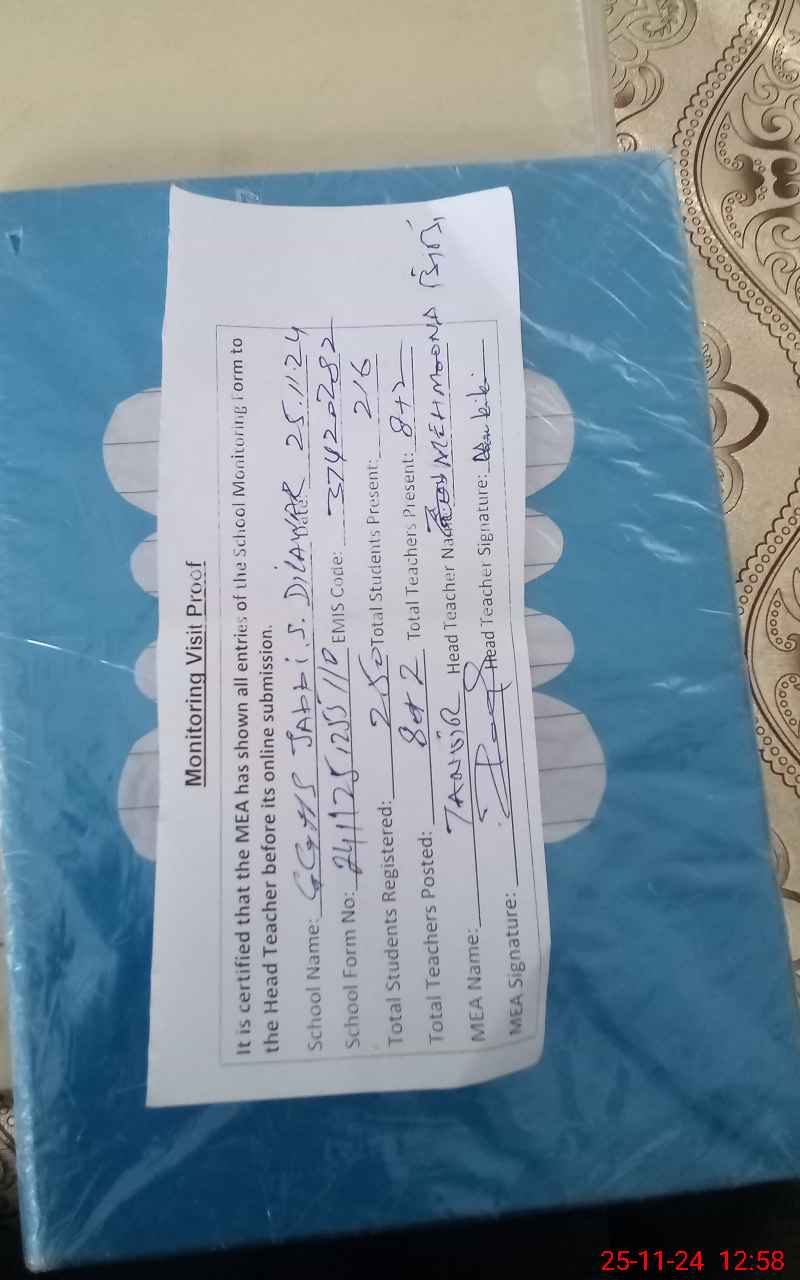 Monitoring Visit Proof
It is certified that the MEA has shown all entries of the School Monitoring Form to
the Head Teacher before its online submission.
School Name: GGHS JABBI.S.DILAWAR Date: 25.11.24
School Form No: EMIS Code: 37420282
Total Students Registered: 250 Total Students Present: 216
Total Teachers Posted: 8+2 Total Teachers Present: 8+2
MEA Name: TANVIR Head Teacher Name MEHMOONA BiBi
MEA Signature: Head Teacher Signature:
25-11-24 12:58